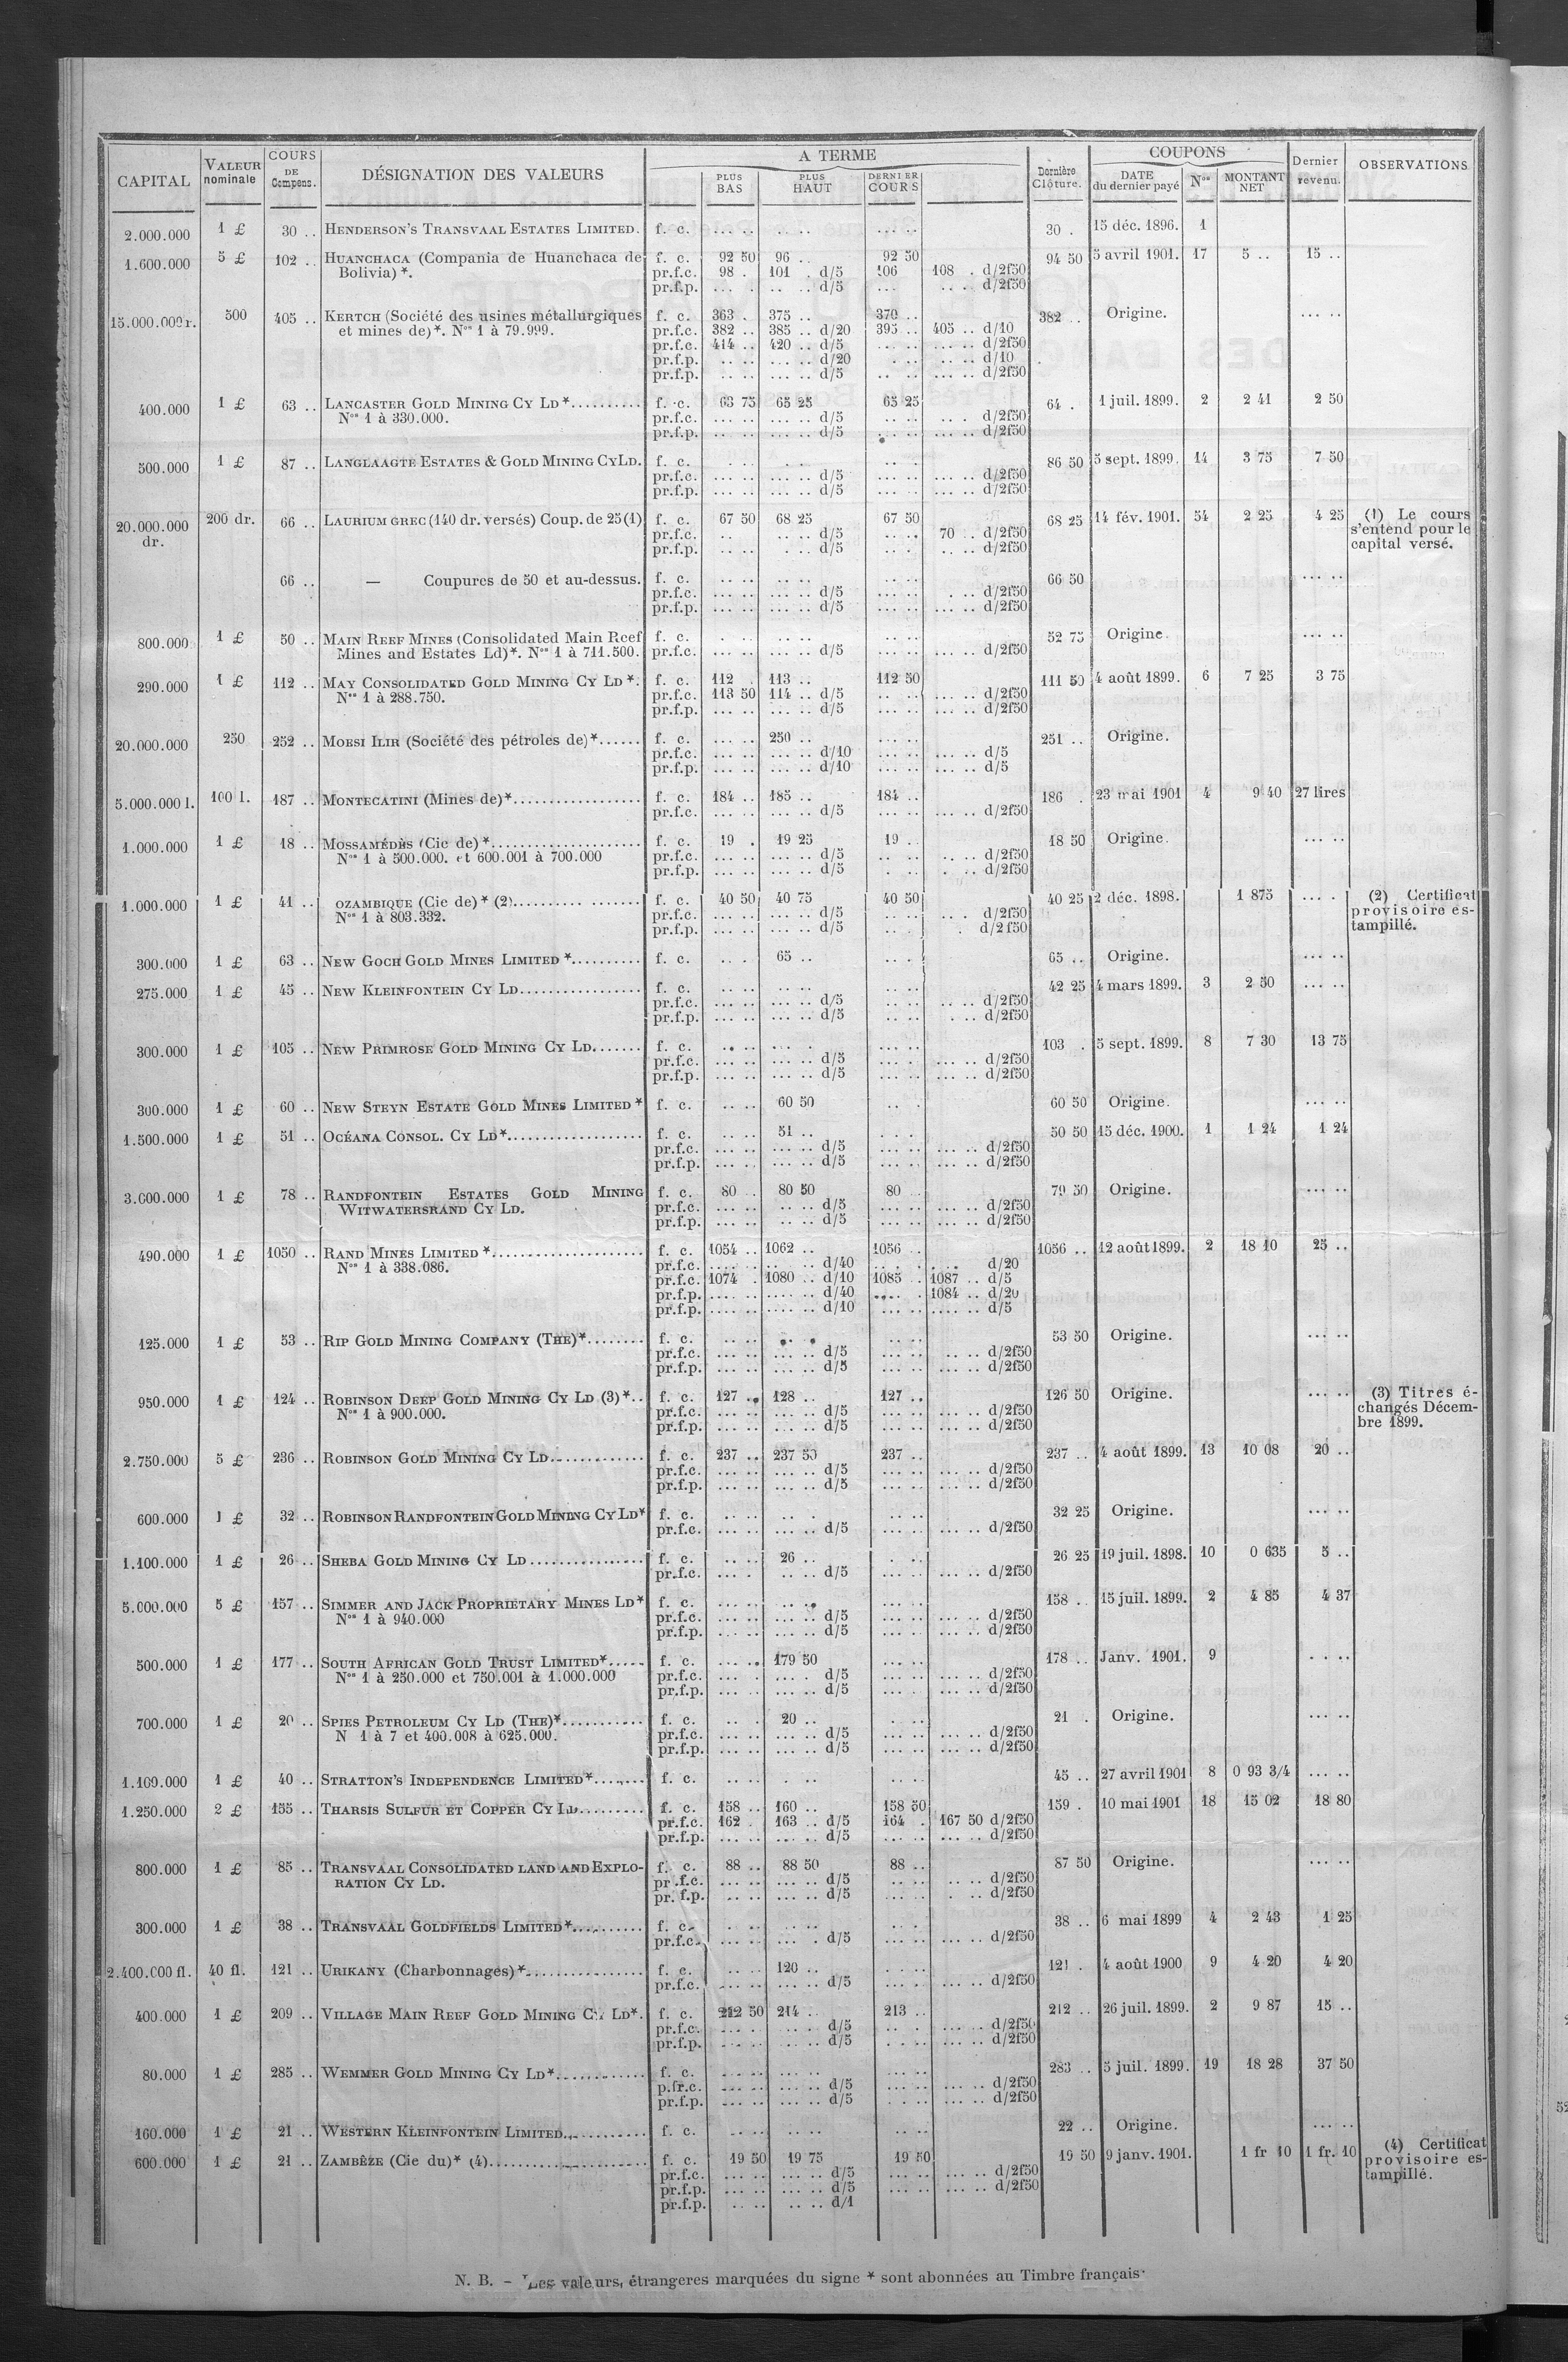 CAPITAL VALEUR nominale COURS DE Compens. DÉSIGNATION DES VALEURS A TERME PLUS BAS PLUS HAUT DERNIER COURS Dernière Clôture. COUPONS DATE du dernier payé Nos MONTANT NET Dernier revenu. OBSERVATIONS
2.000.000 1 £ 30 .. HENDERSON'S TRANSVAAL ESTATES LIMITED. f. c. ... .. .. .. ... .. 30 . 15 déc. 1896. 1
1.600.000 5 £ 102 .. HUANCHACA (Compania de Huanchaca de f. c. 92 50 96 .. 92 50 94 50 5 avril 1901. 17 5 .. 15 ..
Bolivia) *. pr.f.c. 98 . 101 . d/5 106 108 . d/2f50
pr.f.p. ... . .. .. d/5 ... .. . d/2f50
15.000.000 r. 500 405 .. KERTCH (Société des usines métallurgiques f. c. 363 . 375 .. 370 .. 382 .. Origine. ... ..
et mines de)*. Nos 1 à 79.999. pr.f.c. 382 .. 385 .. d/20 395 .. 405 .. d/10
pr.f.c. 414 .. 420 .. d/5 ... .. ... .. d/2f50
pr.f.p. .. .. ... .. d/20 . .. .. .. d/10
pr.f.p. .. .. ... .. d/5 .. .. ... .. d/2f50
400.000 1 £ 63 .. LANCASTER GOLD MINING CY LD *.......... f. c. 63 75 65 25 65 25 64 . 1 juil. 1899. 2 2 41 2 50
Nos 1 à 330.000. pr.f.c. ... .. ... .. d/5 ... .. . .. d/2f50
pr.f.p. .. .. ... .. d/5 .. .. ... .. d/2f50
500.000 1 £ 87 .. LANGLAAGTE ESTATES & GOLD MINING CY LD. f. c. . .. . .. .. . 86 50 5 sept. 1899. 14 3 75 7 50
pr.f.c. ... .. ... .. d/5 ... .. ... .. d/2f50
pr.f.p. ... .. ... .. d/5 ... .. ... .. d/2f50
20.000.000 dr. 200 dr. 66 .. LAURIUM GREC (140 dr. versés) Coup. de 25 (1) f. c. 67 50 68 25 67 50 68 25 14 fév. 1901. 54 2 25 4 25 (1) Le cours
pr.f.c. .. .. .. d/5 .. .. 70 .. d/2f50 s'entend pour le
pr.f.p. .. .. . .. d/5 .. . .. .. d/2f50 capital versé.
66 .. — Coupures de 50 et au-dessus. f. c. .. .. .. .. .. .. 66 50 ... ..
pr.f.c. ... .. ... .. d/5 ... .. . .. d/2f50
pr.f.p. ... .. ... .. d/5 ... .. ... .. d/2f50
800.000 1 £ 50 .. MAIN REEF MINES (Consolidated Main Reef f. c. . .. .. .. .. .. 52 75 Origine. ... ..
Mines and Estates Ld)*. Nos 1 à 711.500. pr.f.c. ... .. ... .. d/5 ... .. ... .. d/2f50
290.000 1 £ 112 .. MAY CONSOLIDATED GOLD MINING CY LD *. f. c. 112 . 113 .. 112 50 111 50 4 août 1899. 6 7 25 3 75
Nos 1 à 288.750. pr.f.c. 113 50 114 .. d/5 .. .. ... .. d/2f50
pr.f.p. ... .. ... .. d/5 ... .. ... .. d/2f50
20.000.000 250 252 .. MOESI ILIR (Société des pétroles de)*...... f. c. ... .. 250 .. ... .. 251 .. Origine.
pr.f.c. ... .. ... .. d/10 ... .. ... .. d/5
pr.f.p. ... .. ... .. d/10 ... .. ... .. d/5
5.000.000 l. 100 l. 187 .. MONTECATINI (Mines de)*................. f. c. 184 .. 185 .. 184 .. 186 . 23 mai 1901 4 9 40 27 lires
pr.f.c. ... .. ... .. d/5 ... .. ... .. d/2f50
1.000.000 1 £ 18 .. MOSSAMÉDÈS (Cie de) *..................... f. c. 19 . 19 25 19 .. 18 50 Origine. ... ..
Nos 1 à 500.000. et 600.001 à 700.000 pr.f.c. ... .. ... .. d/5 .. .. .. .. d/2f50
pr.f.p. ... .. ... .. d/5 . .. . .. d/2f50
1.000.000 1 £ 41 .. OZAMBIQUE (Cie de) * (2).......... ....... f. c. 40 50 40 75 40 50 40 25 2 déc. 1898. 1 875 ... . (2) Certificat
Nos 1 à 803.332. pr.f.c. ... .. ... .. d/5 .. .. .. . d/2f50 provisoire es-
pr.f.p. ... .. ... .. d/5 .. . . d/2f50 tampillé.
300.000 1 £ 63 .. NEW GOCH GOLD MINES LIMITED *.......... f. c. .. . 65 .. .. . 65 .. Origine. ... ..
275.000 1 £ 45 .. NEW KLEINFONTEIN CY LD................. f. c. .. .. .. .. ... .. 42 25 4 mars 1899. 3 2 50 ... ..
pr.f.c. ... .. ... .. d/5 .. .. .. .. d/2f50
pr.f.p. ... .. ... .. d/5 .. .. . .. d/2f50
300.000 1 £ 105 .. NEW PRIMROSE GOLD MINING CY LD....... f. c. .. .. ... . ... .. 103 . 5 sept. 1899. 8 7 30 13 75
pr.f.c. ... .. ... .. d/5 ... .. ... .. d/2f50
pr.f.p. ... .. ... .. d/5 ... .. ... .. d/2f50
300.000 1 £ 60 .. NEW STEYN ESTATE GOLD MINES LIMITED * f. c. .. .. 60 50 .. . 60 50 Origine. ... ..
1.500.000 1 £ 51 .. OCÉANA CONSOL. CY LD*................... f. c. .. .. 51 .. . .. 50 50 15 déc. 1900. 1 1 24 1 24
pr.f.c. ... .. ... .. d/5 ... .. ... .. d/2f50
pr.f.p. ... .. ... .. d/5 ... .. ... .. d/2f50
3.000.000 1 £ 78 .. RANDFONTEIN ESTATES GOLD MINING f. c. 80 .. 80 50 80 .. 79 50 Origine. ... ..
WITWATERSRAND CY LD. pr.f.c. ... .. .. .. d/5 ... .. ... .. d/2f50
pr.f.p. ... .. .. .. d/5 ... .. ... .. d/2f50
490.000 1 £ 1050 .. RAND MINES LIMITED *..................... f. c. 1054 .. 1062 .. 1056 .. 1056 .. 12 août 1899. 2 18 10 25 ..
Nos 1 à 338.086. pr.f.c. .... .. .. .. d/40 .. . . .. d/20
pr.f.c. 1074 . 1080 .. d/10 1085 .. 1087 .. d/5
pr.f.p. .... .. .... .. d/40 .... . 1084 .. d/20
pr.f.p. .... .. .... .. d/10 ... .. ... .. d/5
125.000 1 £ 53 .. RIP GOLD MINING COMPANY (THE)*........ f. c. .. .. .. . .. .. 53 50 Origine. ... ..
pr.f.c. ... .. ... .. d/5 ... .. .. .. d/2f50
pr.f.p. ... .. ... .. d/5 ... .. .. .. d/2f50
950.000 1 £ 124 .. ROBINSON DEEP GOLD MINING CY LD (3) *.. f. c. 127 .. 128 .. 127 .. 126 50 Origine. ... .. (3) Titres é-
Nos 1 à 900.000. pr.f.c. ... .. ... .. d/5 ... .. ... .. d/2f50 changés Décem-
pr.f.p. ... .. ... .. d/5 ... .. ... .. d/2f50 bre 1899.
2.750.000 5 £ 236 .. ROBINSON GOLD MINING CY LD............. f. c. 237 .. 237 50 237 .. 237 .. 4 août 1899. 13 10 08 20 ..
pr.f.c. ... .. ... .. d/5 ... .. ... .. d/2f50
pr.f.p. ... .. ... .. d/5 ... .. ... .. d/2f50
600.000 1 £ 32 .. ROBINSON RANDFONTEIN GOLD MINING CY LD* f. c. .. .. .. . .. .. 32 25 Origine. ... ..
pr.f.c. ... .. ... .. d/5 ... .. ... .. d/2f50
1.100.000 1 £ 26 .. SHEBA GOLD MINING CY LD ................ f. c. .. .. 26 .. . .. 26 25 19 juil. 1898. 10 0 635 5 ..
pr.f.c. ... . .. .. d/5 ... .. ... .. d/2f50
5.000.000 5 £ 157 .. SIMMER AND JACK PROPRIETARY MINES LD* f. c. ... .. ... .. ... .. 158 .. 15 juil. 1899. 2 4 85 4 37
Nos 1 à 940.000 pr.f.c. ... .. ... .. d/5 ... .. ... .. d/2f50
pr.f.p. ... .. ... .. d/5 ... .. ... .. d/2f50
500.000 1 £ 177 .. SOUTH AFRICAN GOLD TRUST LIMITED*..... f. c. ... .. 179 50 ... .. 178 .. Janv. 1901. 9 . . ..
Nos 1 à 250.000 et 750.001 à 1.000.000 pr.f.c. ... .. ... . d/5 ... .. ... .. d/2f50
pr.f.p. ... . ... .. d/5 ... . ... .. d/2f50
700.000 1 £ 20 .. SPIES PETROLEUM CY LD (THE)*........... f. c. .. . 20 .. .. .. 21 . Origine. ... ..
N 1 à 7 et 400.008 à 625.000. pr.f.c. ... .. ... .. d/5 ... .. ... .. d/2f50
pr.f.p. ... .. ... .. d/5 ... .. ... .. d/2f50
1.109.000 1 £ 40 .. STRATTON'S INDEPENDENCE LIMITED*....... f. c. .. .. . .. .. .. 45 .. 27 avril 1901 8 0 93 3/4 ... ..
1.250.000 2 £ 155 .. THARSIS SULFUR ET COPPER CY LD......... f. c. 158 .. 160 .. 158 50 159 . 10 mai 1901 18 15 02 18 80
pr.f.c. 162 . 163 .. d/5 164 . 167 50 d/2f50
pr.f.p. ... .. ... .. d/5 ... .. ... .. d/2f50
800.000 1 £ 85 .. TRANSVAAL CONSOLIDATED LAND AND EXPLO- f. c. 88 .. 88 50 88 .. 87 50 Origine. ... ..
RATION CY LD. pr.f.c. ... .. ... .. d/5 .. .. .. .. d/2f50
pr. f.p. .. .. ... .. d/5 ... .. . .. d/2f50
300.000 1 £ 38 .. TRANSVAAL GOLDFIELDS LIMITED*.......... f. c. . .. .. .. .. . 38 .. 6 mai 1899 4 2 43 1 25
pr.f.c. ... .. ... . d/5 ... .. ... .. d/2f50
2.400.000 fl. 40 fl. 121 .. URIKANY (Charbonnages)*................. f. c. .. .. 120 .. .. .. 121 . 4 août 1900 9 4 20 4 20
pr.f.c. ... .. ... .. d/5 ... .. ... .. d/2f50
400.000 1 £ 209 .. VILLAGE MAIN REEF GOLD MINING CY LD*. f. c. 212 50 214 .. 213 .. 212 .. 26 juil. 1899. 2 9 87 15 ..
pr.f.c. ... . .. . d/5 .. . ... .. d/2f50
pr.f.p. ... .. .. .. d/5 . .. ... .. d/2f50
80.000 1 £ 285 .. WEMMER GOLD MINING CY LD*............. f. c. ... .. ... .. ... .. 283 .. 5 juil. 1899. 19 18 28 37 50
p.fr.c. ... .. ... .. d/5 ... .. ... .. d/2f50
pr.f.p. ... .. ... .. d/5 . . .. ... .. d/2f50
160.000 1 £ 21 .. WESTERN KLEINFONTEIN LIMITED............ f. c. .. .. .. .. .. .. 22 .. Origine. ... ..
600.000 1 £ 21 .. ZAMBÈZE (Cie du)* (4)....................... f. c. 19 50 19 75 19 50 19 50 9 janv. 1901. 1 fr 10 1 fr. 10 (4) Certificat
pr.f.c. ... .. ... .. d/5 ... .. ... .. d/2f50 provisoire es-
pr.f.p. ... .. ... .. d/5 ... .. ... .. d/2f50 tampillé.
pr.f.p. .. .. .. .. d/1
N. B. – Les valeurs, étrangeres marquées du signe * sont abonnées au Timbre français